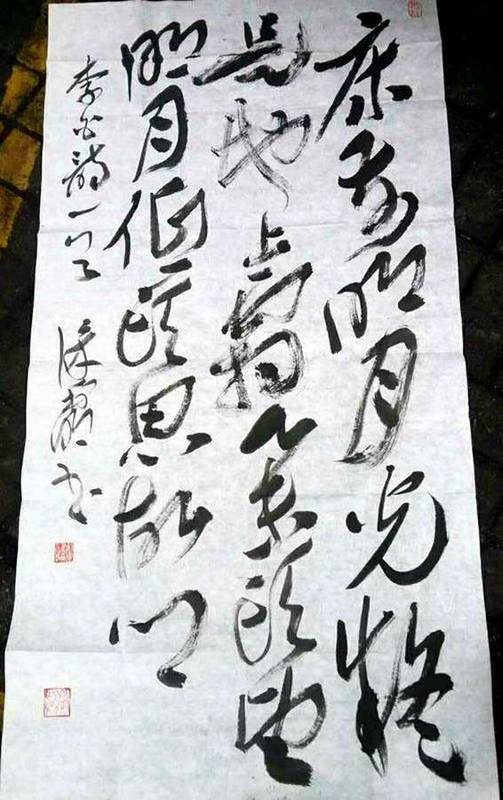 床前明月光疑
是地上霜舉頭望
明月低頭思故鄉
李白詩一首
书